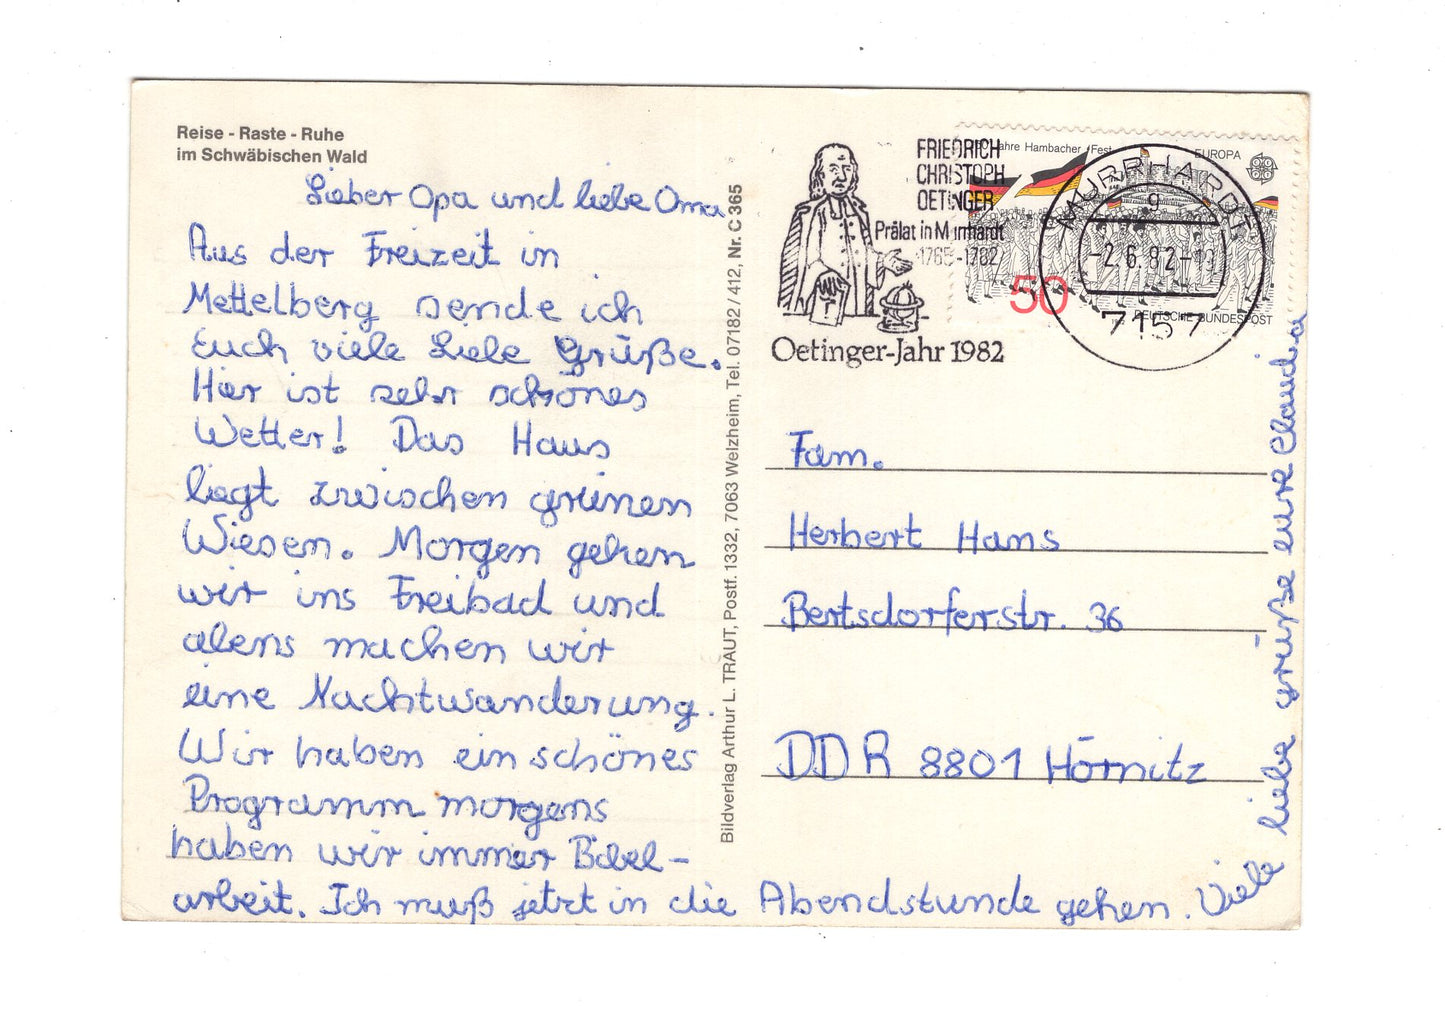 Reise - Raste - Ruhe
im Schwäbischen Wald
Lieber Opa und liebe Oma
Aus der Freizeit in
Mettelberg sende ich
Euch viele Liebe Grüße.
Hier ist sehr schönes
Wetter! Das Haus
liegt zwischen grünen
Wiesen. Morgen gehen
wir ins Freibad und
abens machen wir
eine Nachtwanderung.
Wir haben ein schönes
Programm morgens
haben wir immer Bibel-
arbeit. Ich muß jetzt in die Abendstunde gehen. Viele
liebe grüße eure Claudia
Bildverlag Arthur L. TRAUT, Postf. 1332, 7063 Welzheim, Tel. 07182 / 412, Nr. C 365
FRIEDRICH
CHRISTOPH
OETINGER
Prälat in Murrhardt
1765-1782
Oetinger-Jahr 1982
Jahre Hambacher Fest
EUROPA
50
DEUTSCHE BUNDESPOST
MURRHARDT
g
-2.6.82-19
7157
Fam.
Herbert Hans
Bertsdorferstr. 36
DDR 8801 Hörnitz